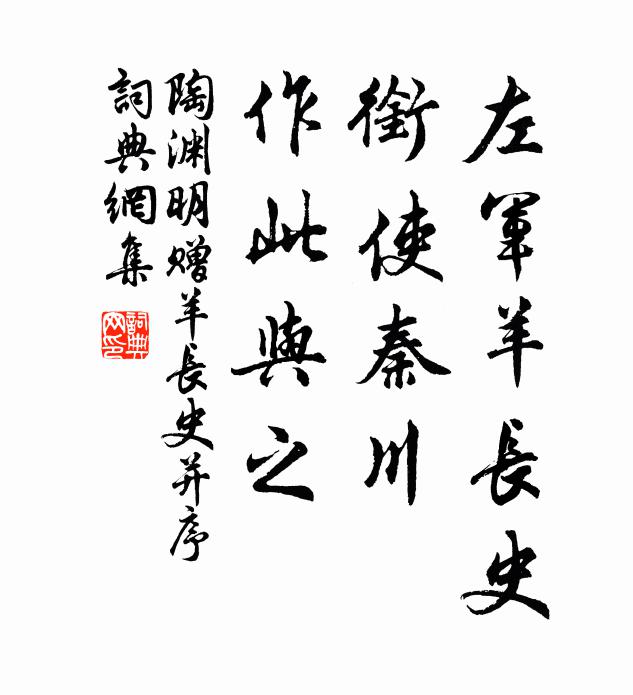 左軍羊長史
銜使秦川
作此與之
陶渊明赠羊長史并序
詞典網集
詞典網印